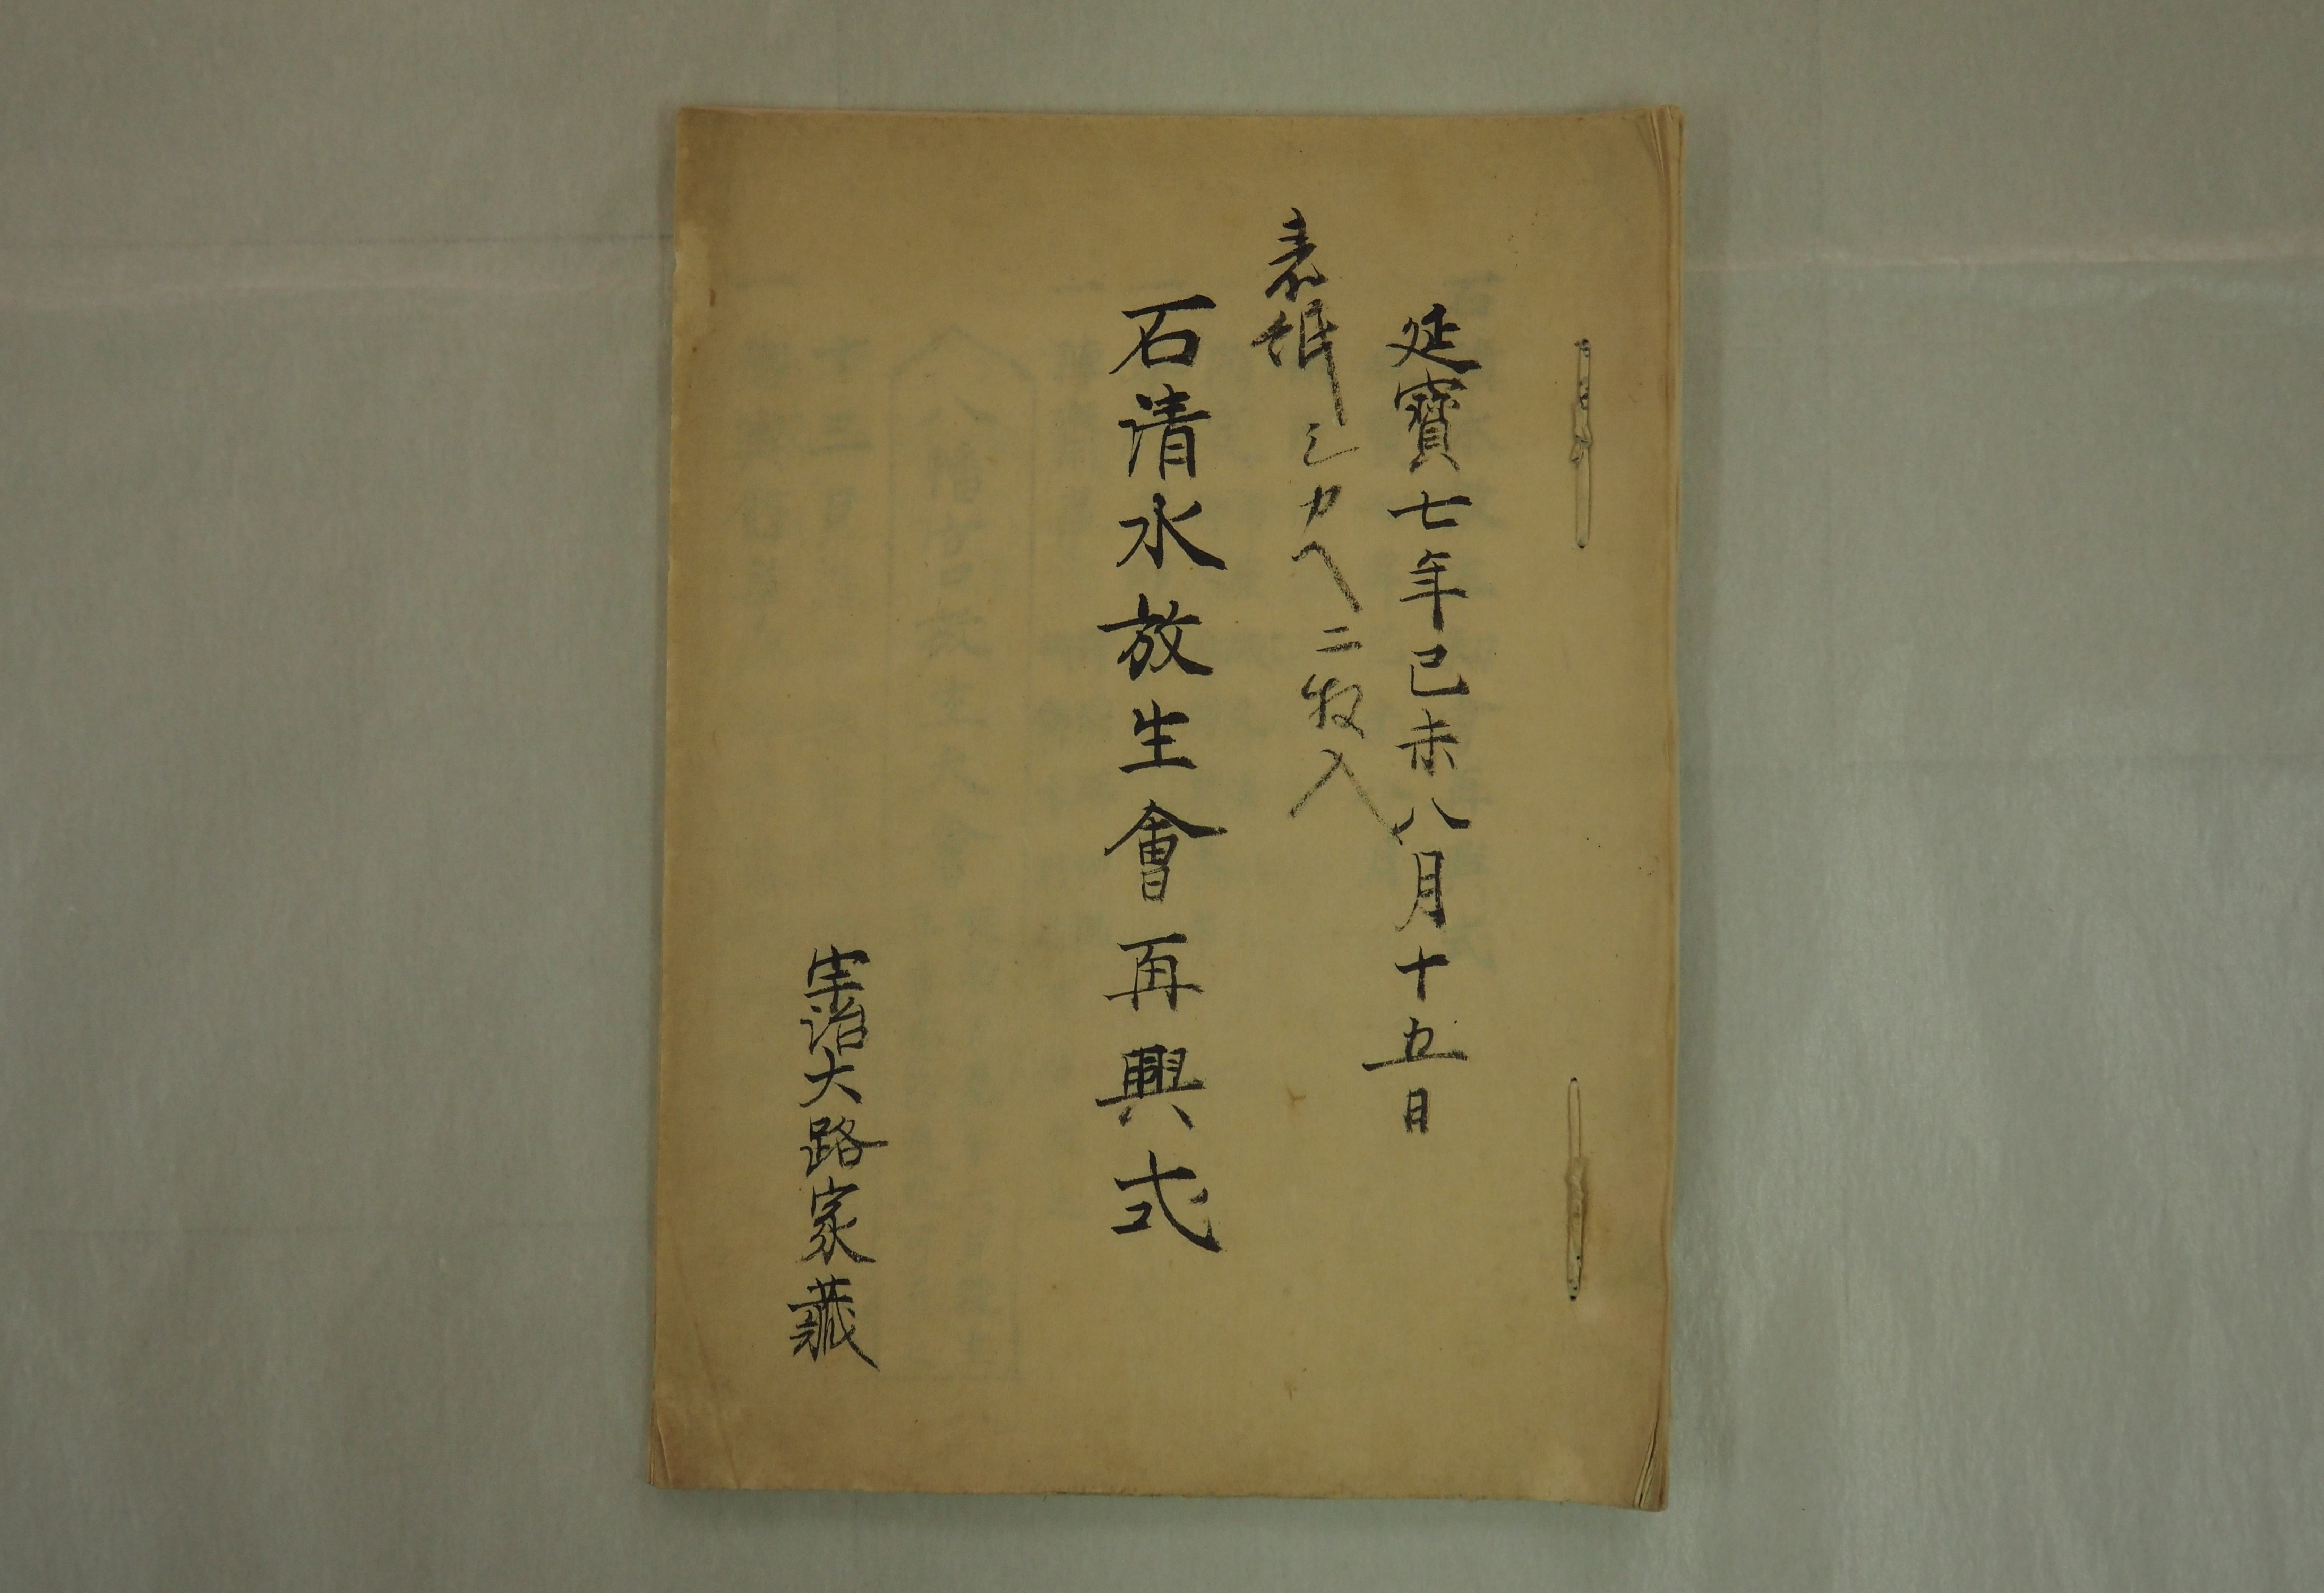 延寶七年己未八月十五日
表紙ミカヘ二枚入
石清水放生會再興式
宇治大路家蔵